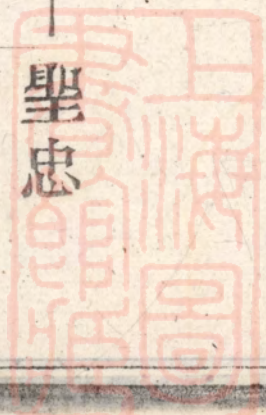 聖忠
上海圖
書館藏